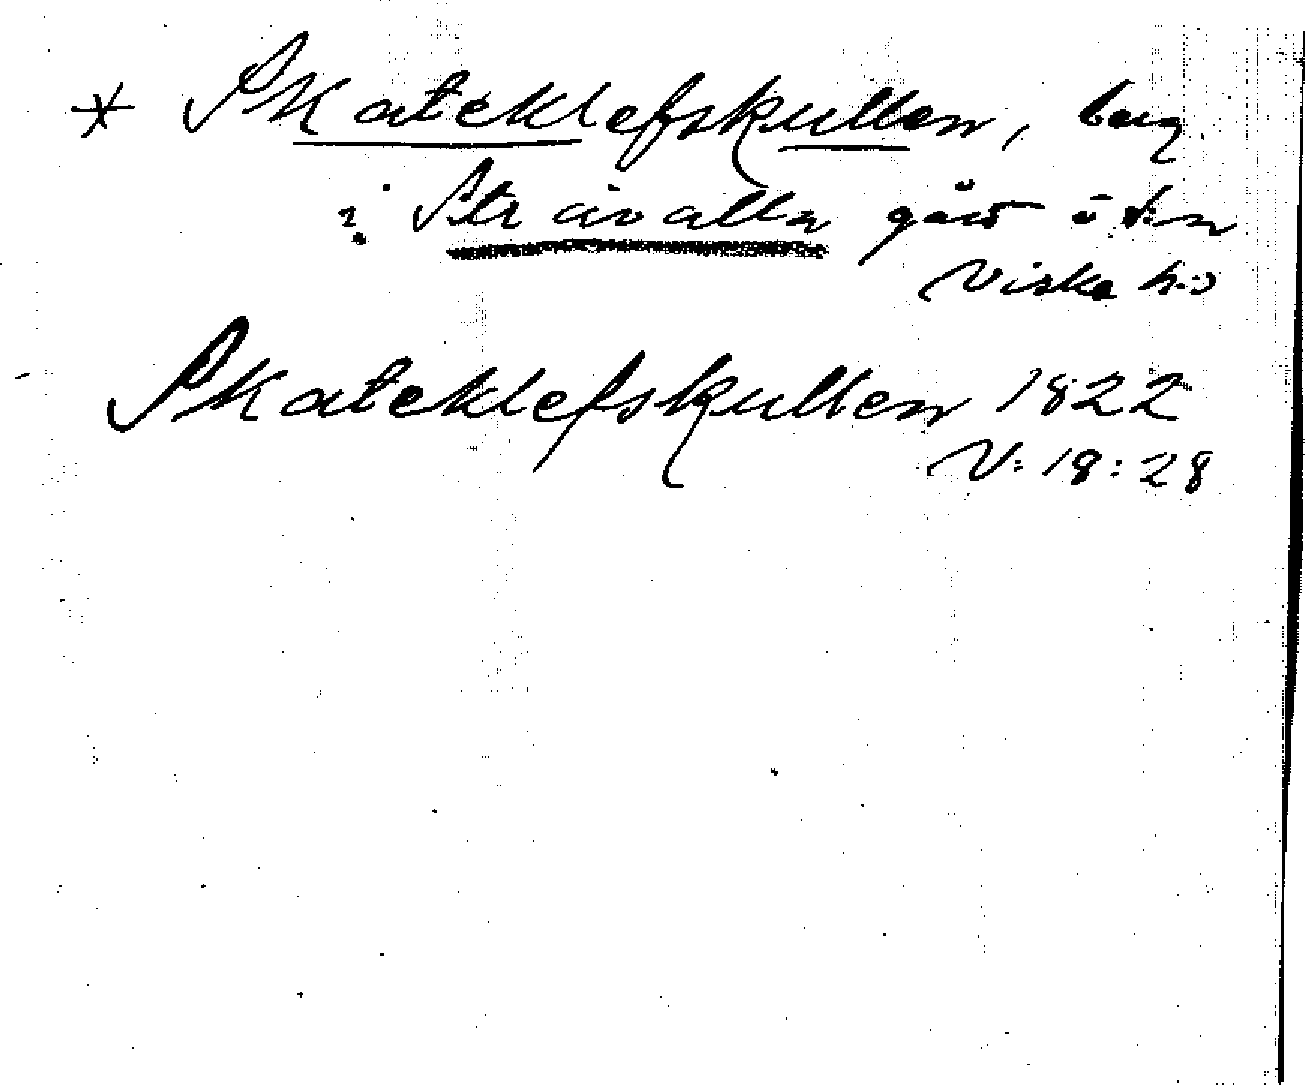 * Skateklefskullen, berg
i Stravalla gård
Viske hd
Skateklefskullen 1822
V: 18: 28